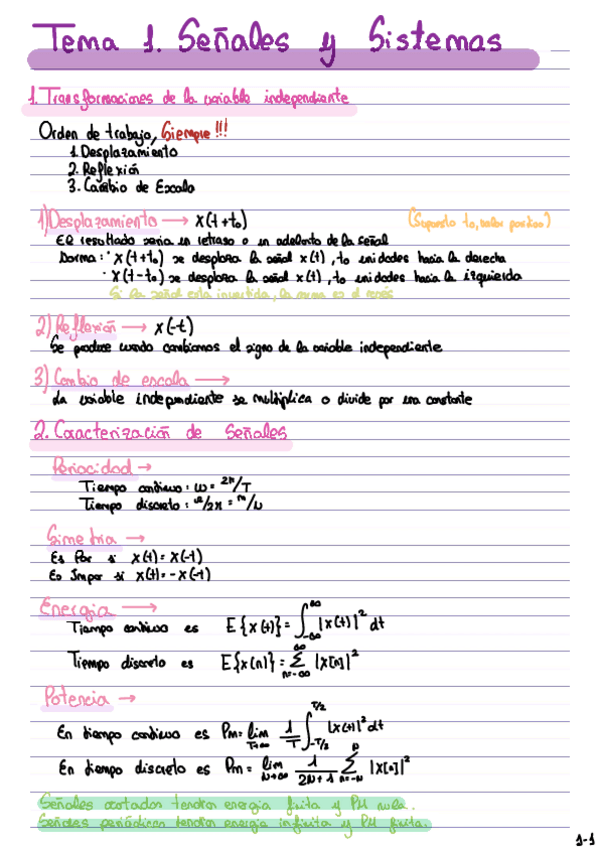 Tema 1. Señales y Sistemas
1. Transformaciones de la variable independiente
Orden de trabajo, Siempre!!!
1. Desplazamiento
2. Reflexión
3. Cambio de Escala
1) Desplazamiento → x(t+t₀) (Supuesto t₀, valor positivo)
El resultado seria un retraso o un adelanto de la señal
Norma: · x(t+t₀) se desplaza la señal x(t), t₀ unidades hacia la derecha
· x(t-t₀) se desplaza la señal x(t), t₀ unidades hacia la izquierda
Si la señal esta invertida, la norma es al revés
2) Reflexión → x(-t)
Se produce cuando cambiamos el signo de la variable independiente
3) Cambio de escala →
La variable independiente se multiplica o divide por una constante
2. Caracterización de Señales
Periocidad →
Tiempo continuo: ω = 2π/T
Tiempo discreto: Ω/2π = m/N
Simetria →
Es Par si x(t) = x(-t)
Es Impar si x(t) = -x(-t)
Energia →
Tiempo continuo es E{x(t)} = ∫_{-∞}^{∞} |x(t)|² dt
Tiempo discreto es E{x(n)} = Σ_{n=-∞}^{∞} |x[n]|²
Potencia →
En tiempo continuo es PM = lim_{T→∞} 1/T ∫_{-T/2}^{T/2} |x(t)|² dt
En tiempo discreto es PM = lim_{N→∞} 1/(2N+1) Σ_{n=-N}^{N} |x[n]|²
Señales acotadas tendran energia finita y PM nula.
Señales periódicas tendran energia infinita y PM finita.
1-1